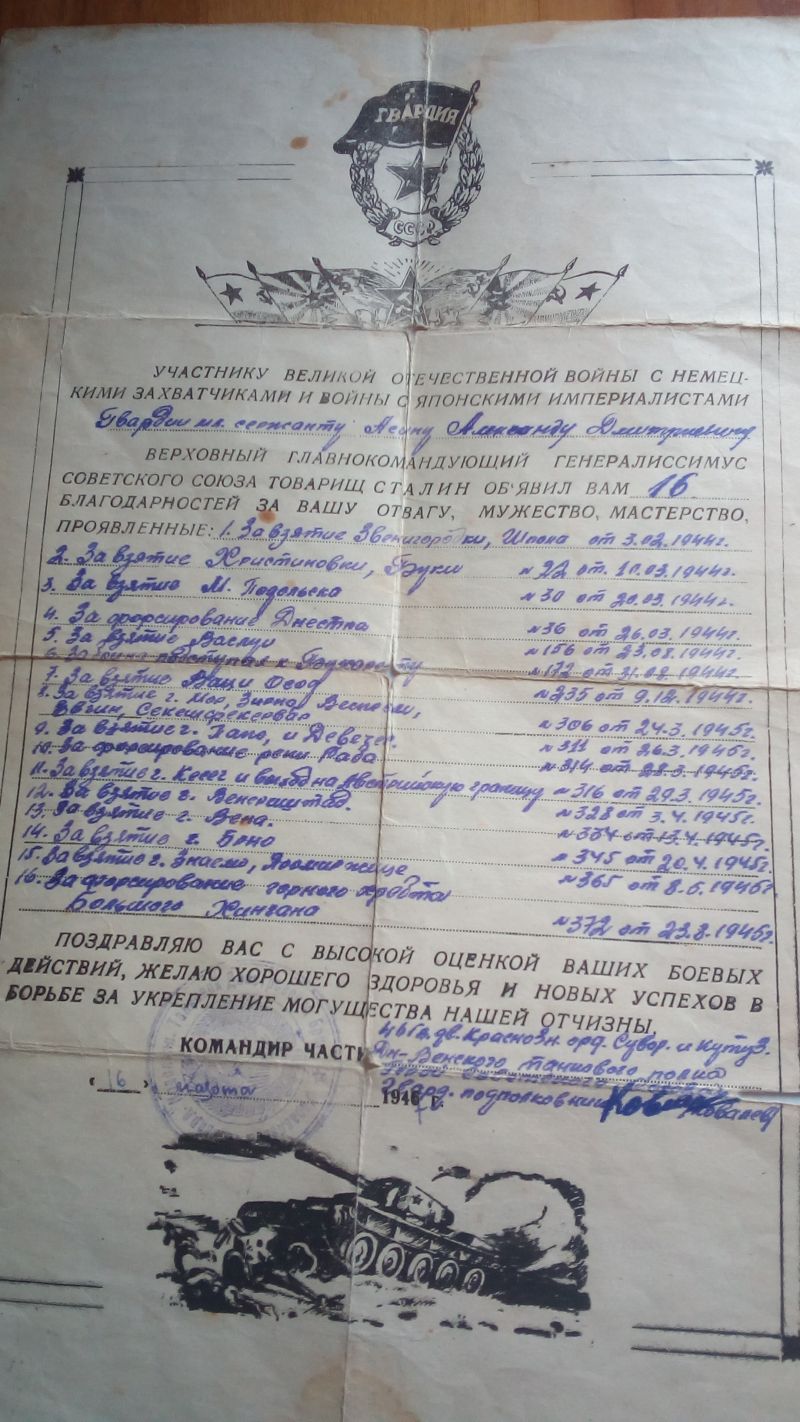 ГВАРДИЯ
СССР
УЧАСТНИКУ ВЕЛИКОЙ ОТЕЧЕСТВЕННОЙ ВОЙНЫ С НЕМЕЦ-
КИМИ ЗАХВАТЧИКАМИ И ВОЙНЫ С ЯПОНСКИМИ ИМПЕРИАЛИСТАМИ
Гвардии мл. сержанту Асину Александру Дмитриевичу
ВЕРХОВНЫЙ ГЛАВНОКОМАНДУЮЩИЙ ГЕНЕРАЛИССИМУС
СОВЕТСКОГО СОЮЗА ТОВАРИЩ СТАЛИН ОБ'ЯВИЛ ВАМ 16
БЛАГОДАРНОСТЕЙ ЗА ВАШУ ОТВАГУ, МУЖЕСТВО, МАСТЕРСТВО,
ПРОЯВЛЕННЫЕ: 1. За взятие Звенигородки, Шпола от 3.02.1944г.
2. За взятие Христиновки, №22 от 10.03.1944г.
3. За взятие М. Подольска №30 от 20.03.1944г.
4. За форсирование Днестра №36 от 26.03.1944г.
5. За взятие Васлуи №156 от 23.08.1944г.
6. к Бухаресту №172 от 31.08.1944г.
7. За взятие №235 от 9.12.1944г.
8. За взятие г. Мор, Зирез, Веспрем,
Секешфехервар №306 от 24.3.1945г.
9. За взятие г. Папа, и Девечер. №311 от 26.3.1945г.
10. За форсирование реки Раба №314 от 28.3.1945г.
11. За взятие г. Кесег и выход на Австрийскую границу №316 от 29.3.1945г.
12. За взятие г. №328 от 3.4.1945г.
13. За взятие г. Вена. №334 от 13.4.1945г.
14. За взятие г. Брно №345 от 20.4.1945г.
15. За взятие г. Знаемо, №365 от 8.5.1945г.
16. За форсирование горного хребта
Большого Хингана №372 от 23.8.1945г.
ПОЗДРАВЛЯЮ ВАС С ВЫСОКОЙ ОЦЕНКОЙ ВАШИХ БОЕВЫХ
ДЕЙСТВИЙ, ЖЕЛАЮ ХОРОШЕГО ЗДОРОВЬЯ И НОВЫХ УСПЕХОВ В
БОРЬБЕ ЗА УКРЕПЛЕНИЕ МОГУЩЕСТВА НАШЕЙ ОТЧИЗНЫ.
КОМАНДИР ЧАСТИ 46 Гв. дв. Краснозн. орд. Сувор. и Кутуз.
Венского танкового полка
Гвард. подполковник Ковалев
"16" марта 194 г.